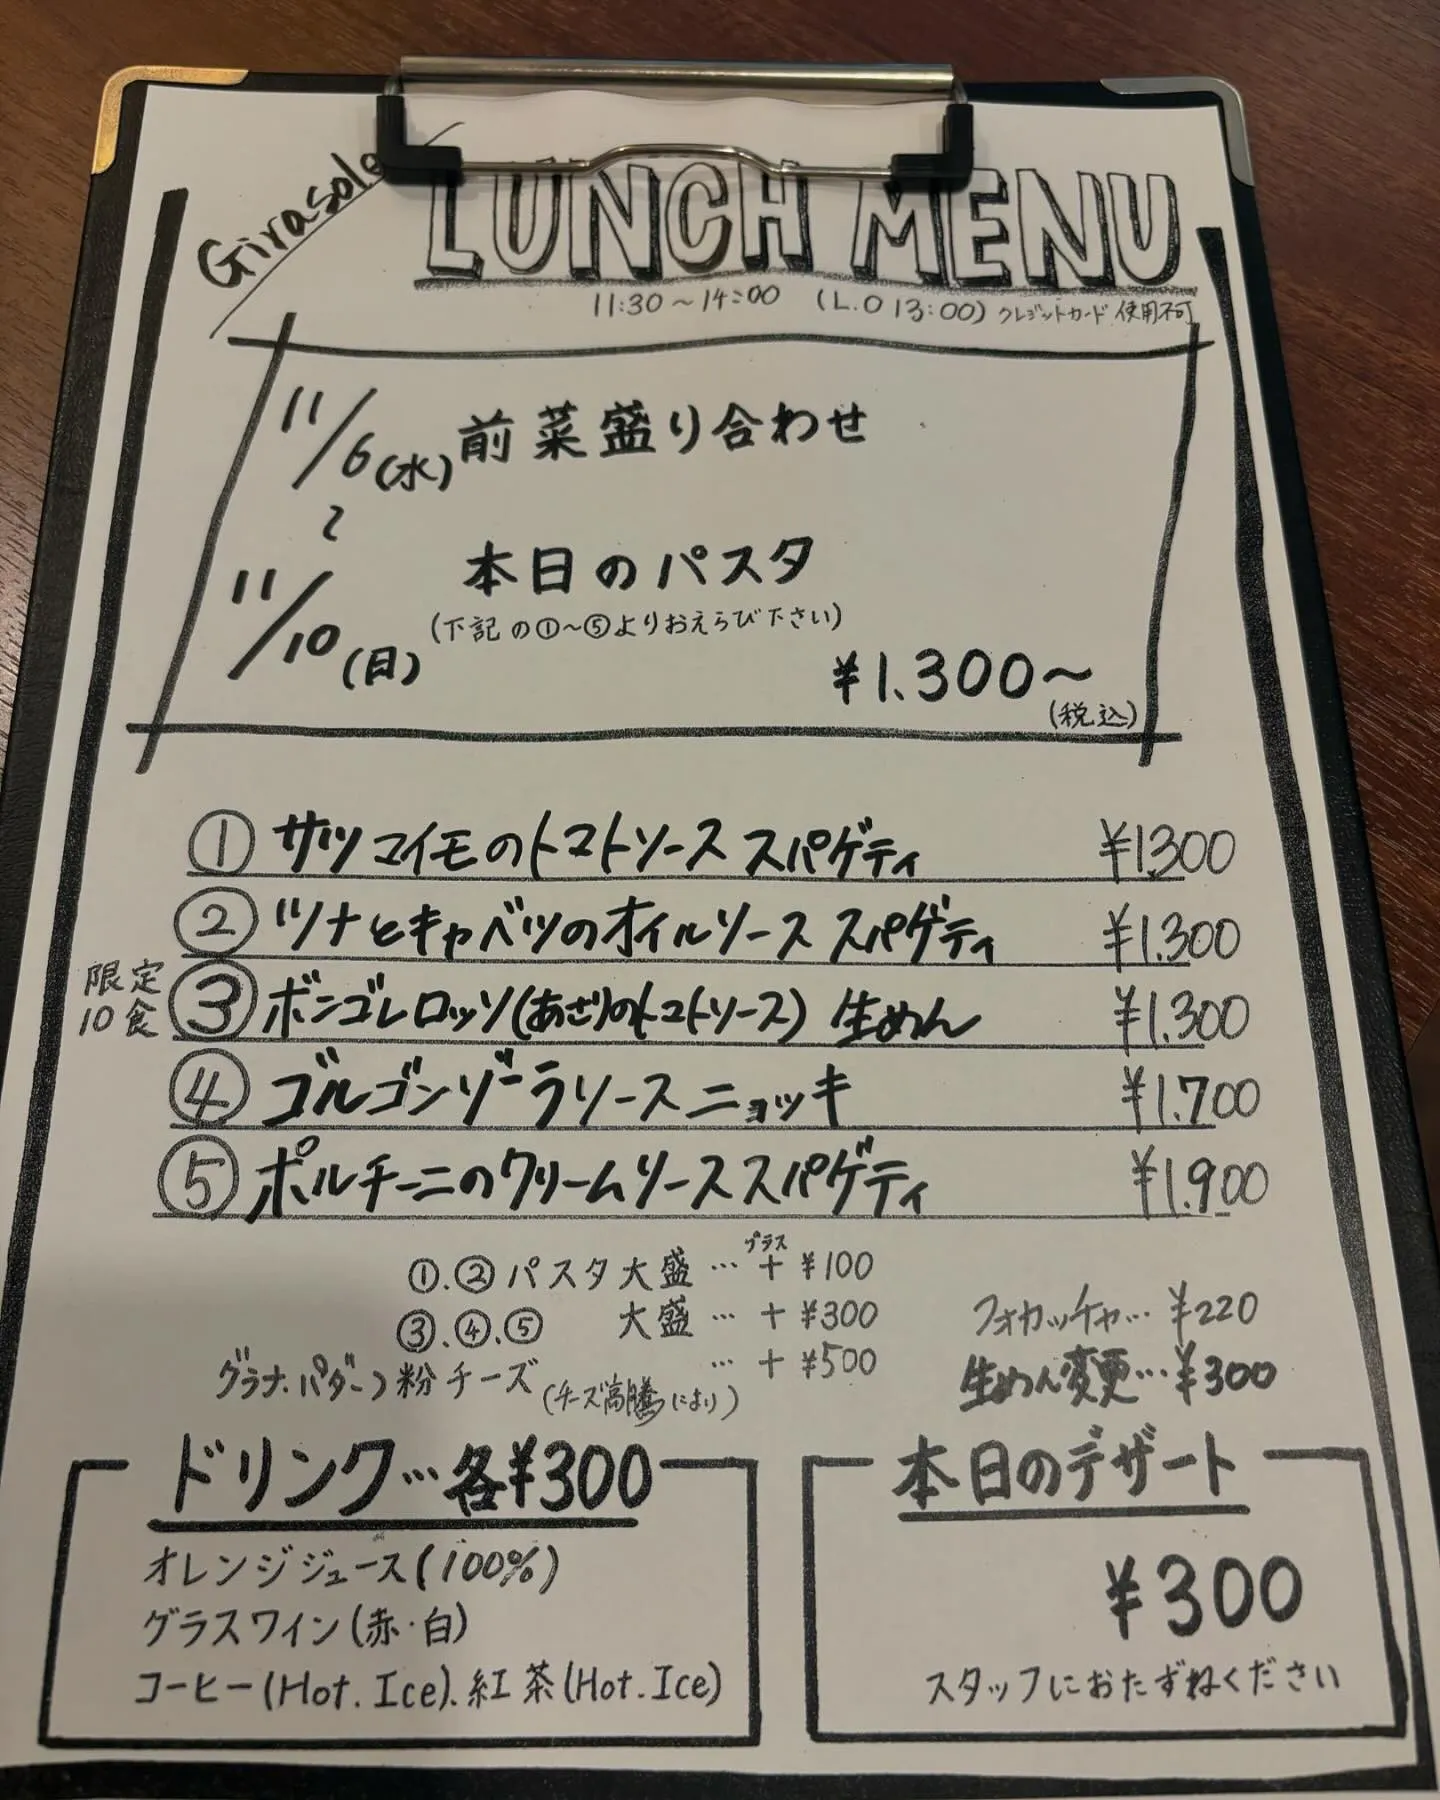 Girasole
LUNCH MENU
11:30～14:00 (L.O 13:00) クレジットカード 使用不可
11/6(水)
前菜盛り合わせ
～
11/10(日)
本日のパスタ
(下記の①～⑤よりおえらび下さい)
¥1.300～
(税込)
① サツマイモのトマトソース スパゲティ ¥1.300
② ツナとキャベツのオイルソース スパゲティ ¥1.300
限定
10食
③ ボンゴレロッソ(あさりのトマトソース) 生めん ¥1.300
④ ゴルゴンゾーラソース ニョッキ ¥1.700
⑤ ポルチーニのクリームソース スパゲティ ¥1.900
プラス
①.② パスタ大盛 … + ¥100
③.④.⑤ 大盛 … + ¥300
グラナ.パダーノ粉チーズ … + ¥500
(チーズ高騰により)
フォカッチャ… ¥220
生めん変更… ¥300
ドリンク… 各¥300
オレンジジュース(100%)
グラスワイン(赤・白)
コーヒー(Hot. Ice). 紅茶(Hot. Ice)
本日のデザート
¥300
スタッフにおたずねください